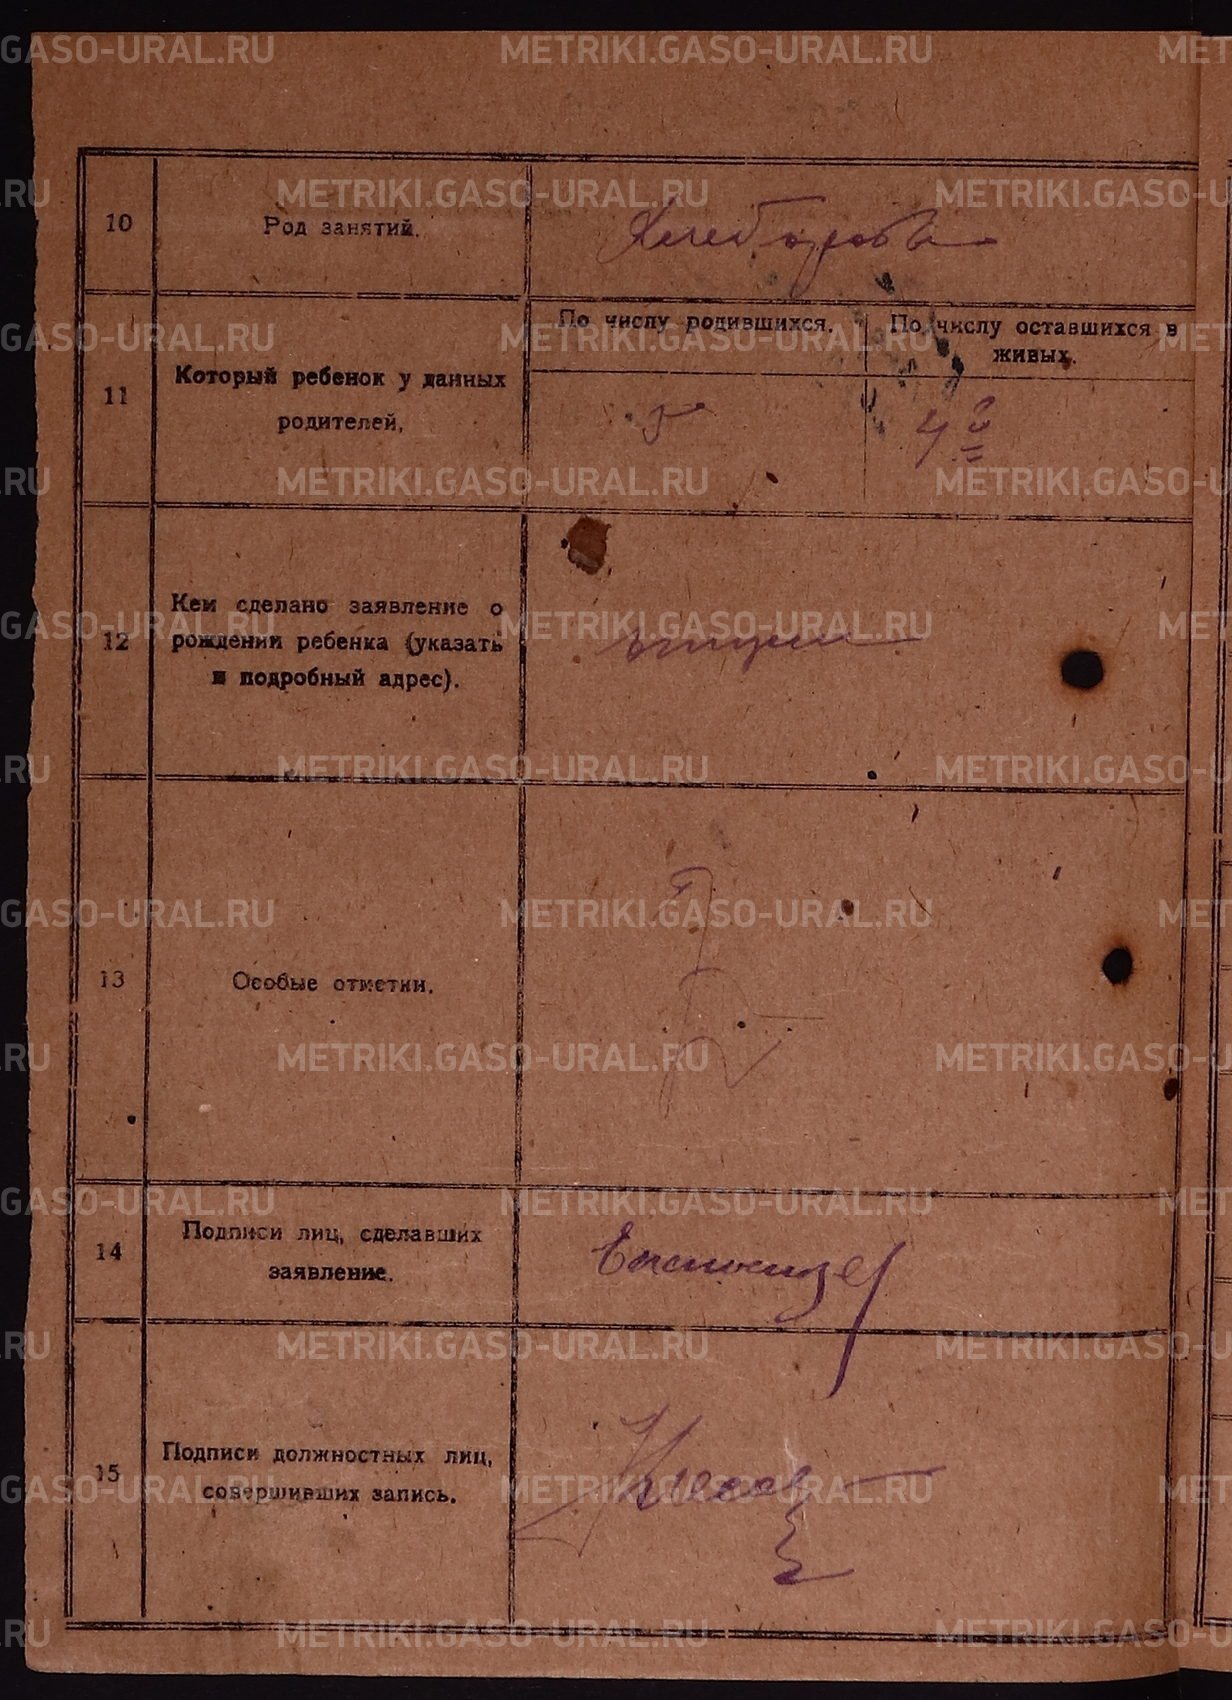 METRIKI.GASO-URAL.RU
10
Род занятий.
Хлебороб
11
Который ребенок у данных
родителей,
По числу родившихся.
По числу оставшихся в
живых.
5
4й
12
Кем сделано заявление о
рождении ребенка (указать
и подробный адрес).
отцом
13
Особые отметки.
14
Подписи лиц, сделавших
заявление.
15
Подписи должностных лиц,
совершивших запись.